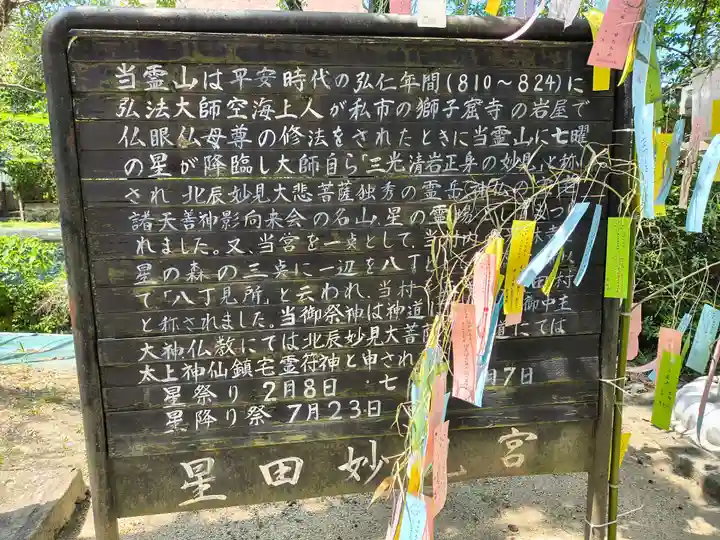 当霊山は平安時代の弘仁年間(810〜824)に
弘法大師空海上人が私市の獅子窟寺の岩屋で
仏眼仏母尊の修法をされたときに当霊山に七曜
の星が降臨し大師自ら「三光清岩正身の妙見」と称
され 北辰妙見大悲菩薩独秀の霊岳
諸天善神影向来会の名山、星の霊場
れました。又、当宮を一点として、当村内
星の森の三点に一辺を八丁
て「八丁見所」と云われ、当村 田村
と称されました。当御祭神は神道 御中主
大神仏教にては北辰妙見大菩 道にては
太上神仙鎮宅霊符神と申され
星祭り 2月8日・七 7日
星降り祭 7月23日
星田妙 宮